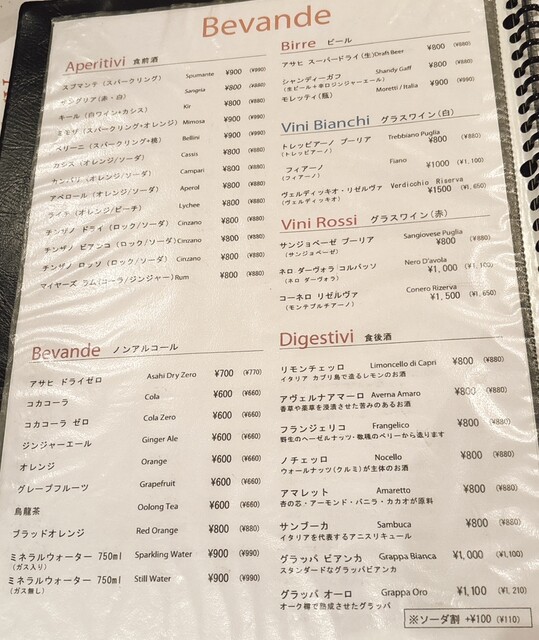 Bevande
Aperitivi 食前酒
スプマンテ（スパークリング） Spumante ¥900 (¥990)
サングリア（赤・白） Sangria ¥800 (¥880)
キール（白ワイン+カシス） Kir ¥800 (¥880)
ミモザ（スパークリング+オレンジ） Mimosa ¥900 (¥990)
ベリーニ（スパークリング+桃） Bellini ¥900 (¥990)
カシス（オレンジ/ソーダ） Cassis ¥800 (¥880)
カンパリ（オレンジ/ソーダ） Campari ¥800 (¥880)
アペロール（オレンジ/ソーダ） Aperol ¥800 (¥880)
ライチ（オレンジ/ピーチ） Lychee ¥800 (¥880)
チンザノ ドライ（ロック/ソーダ） Cinzano ¥800 (¥880)
チンザノ ビアンコ（ロック/ソーダ） Cinzano ¥800 (¥880)
チンザノ ロッソ（ロック/ソーダ） Cinzano ¥800 (¥880)
マイヤーズ ラム（コーラ/ジンジャー） Rum ¥800 (¥880)
Bevande ノンアルコール
アサヒ ドライゼロ Asahi Dry Zero ¥700 (¥770)
コカコーラ Cola ¥600 (¥660)
コカコーラ ゼロ Cola Zero ¥600 (¥660)
ジンジャーエール Ginger Ale ¥600 (¥660)
オレンジ Orange ¥600 (¥660)
グレープフルーツ Grapefruit ¥600 (¥660)
烏龍茶 Oolong Tea ¥600 (¥660)
ブラッドオレンジ Red Orange ¥800 (¥880)
ミネラルウォーター 750ml Sparkling Water ¥900 (¥990)
（ガス入り）
ミネラルウォーター 750ml Still Water ¥900 (¥990)
（ガス無し）
Birre ビール
アサヒ スーパードライ（生）Draft Beer ¥800 (¥880)
シャンディーガフ Shandy Gaff ¥800 (¥880)
（生ビール+辛口ジンジャーエール）
モレッティ（瓶） Moretti / Italia ¥900 (¥990)
Vini Bianchi グラスワイン（白）
トレッビアーノ プーリア Trebbiano Puglia ¥800 (¥880)
（トレッビアーノ）
フィアーノ Fiano ¥1000 (¥1,100)
（フィアーノ）
ヴェルディッキオ・リゼルヴァ Verdicchio Riserva ¥1500 (¥1,650)
（ヴェルディッキオ）
Vini Rossi グラスワイン（赤）
サンジョベーゼ プーリア Sangiovese Puglia ¥800 (¥880)
（サンジョベーゼ）
ネロ ダーヴォラ コルバッソ Nero D'avola ¥1,000 (¥1,100)
（ネロ ダーヴォラ）
コーネロ リゼルヴァ Conero Rizerva ¥1,500 (¥1,650)
（モンテプルチアーノ）
Digestivi 食後酒
リモンチェッロ Limoncello di Capri ¥800 (¥880)
イタリア カプリ島で造るレモンのお酒
アヴェルナアマーロ Averna Amaro ¥800 (¥880)
香草や薬草を浸漬させた苦みのあるお酒
フランジェリコ Frangelico ¥800 (¥880)
野生のヘーゼルナッツ・数種のベリーから造ります
ノチェッロ Nocello ¥800 (¥880)
ウォールナッツ（クルミ）が主体のお酒
アマレット Amaretto ¥800 (¥880)
杏の芯・アーモンド・バニラ・カカオが原料
サンブーカ Sambuca ¥800 (¥880)
イタリアを代表するアニスリキュール
グラッパ ビアンカ Grappa Bianca ¥1,000 (¥1,100)
スタンダードなグラッパビアンカ
グラッパ オーロ Grappa Oro ¥1,100 (¥1,210)
オーク樽で熟成させたグラッパ
※ソーダ割 +¥100 (¥110)